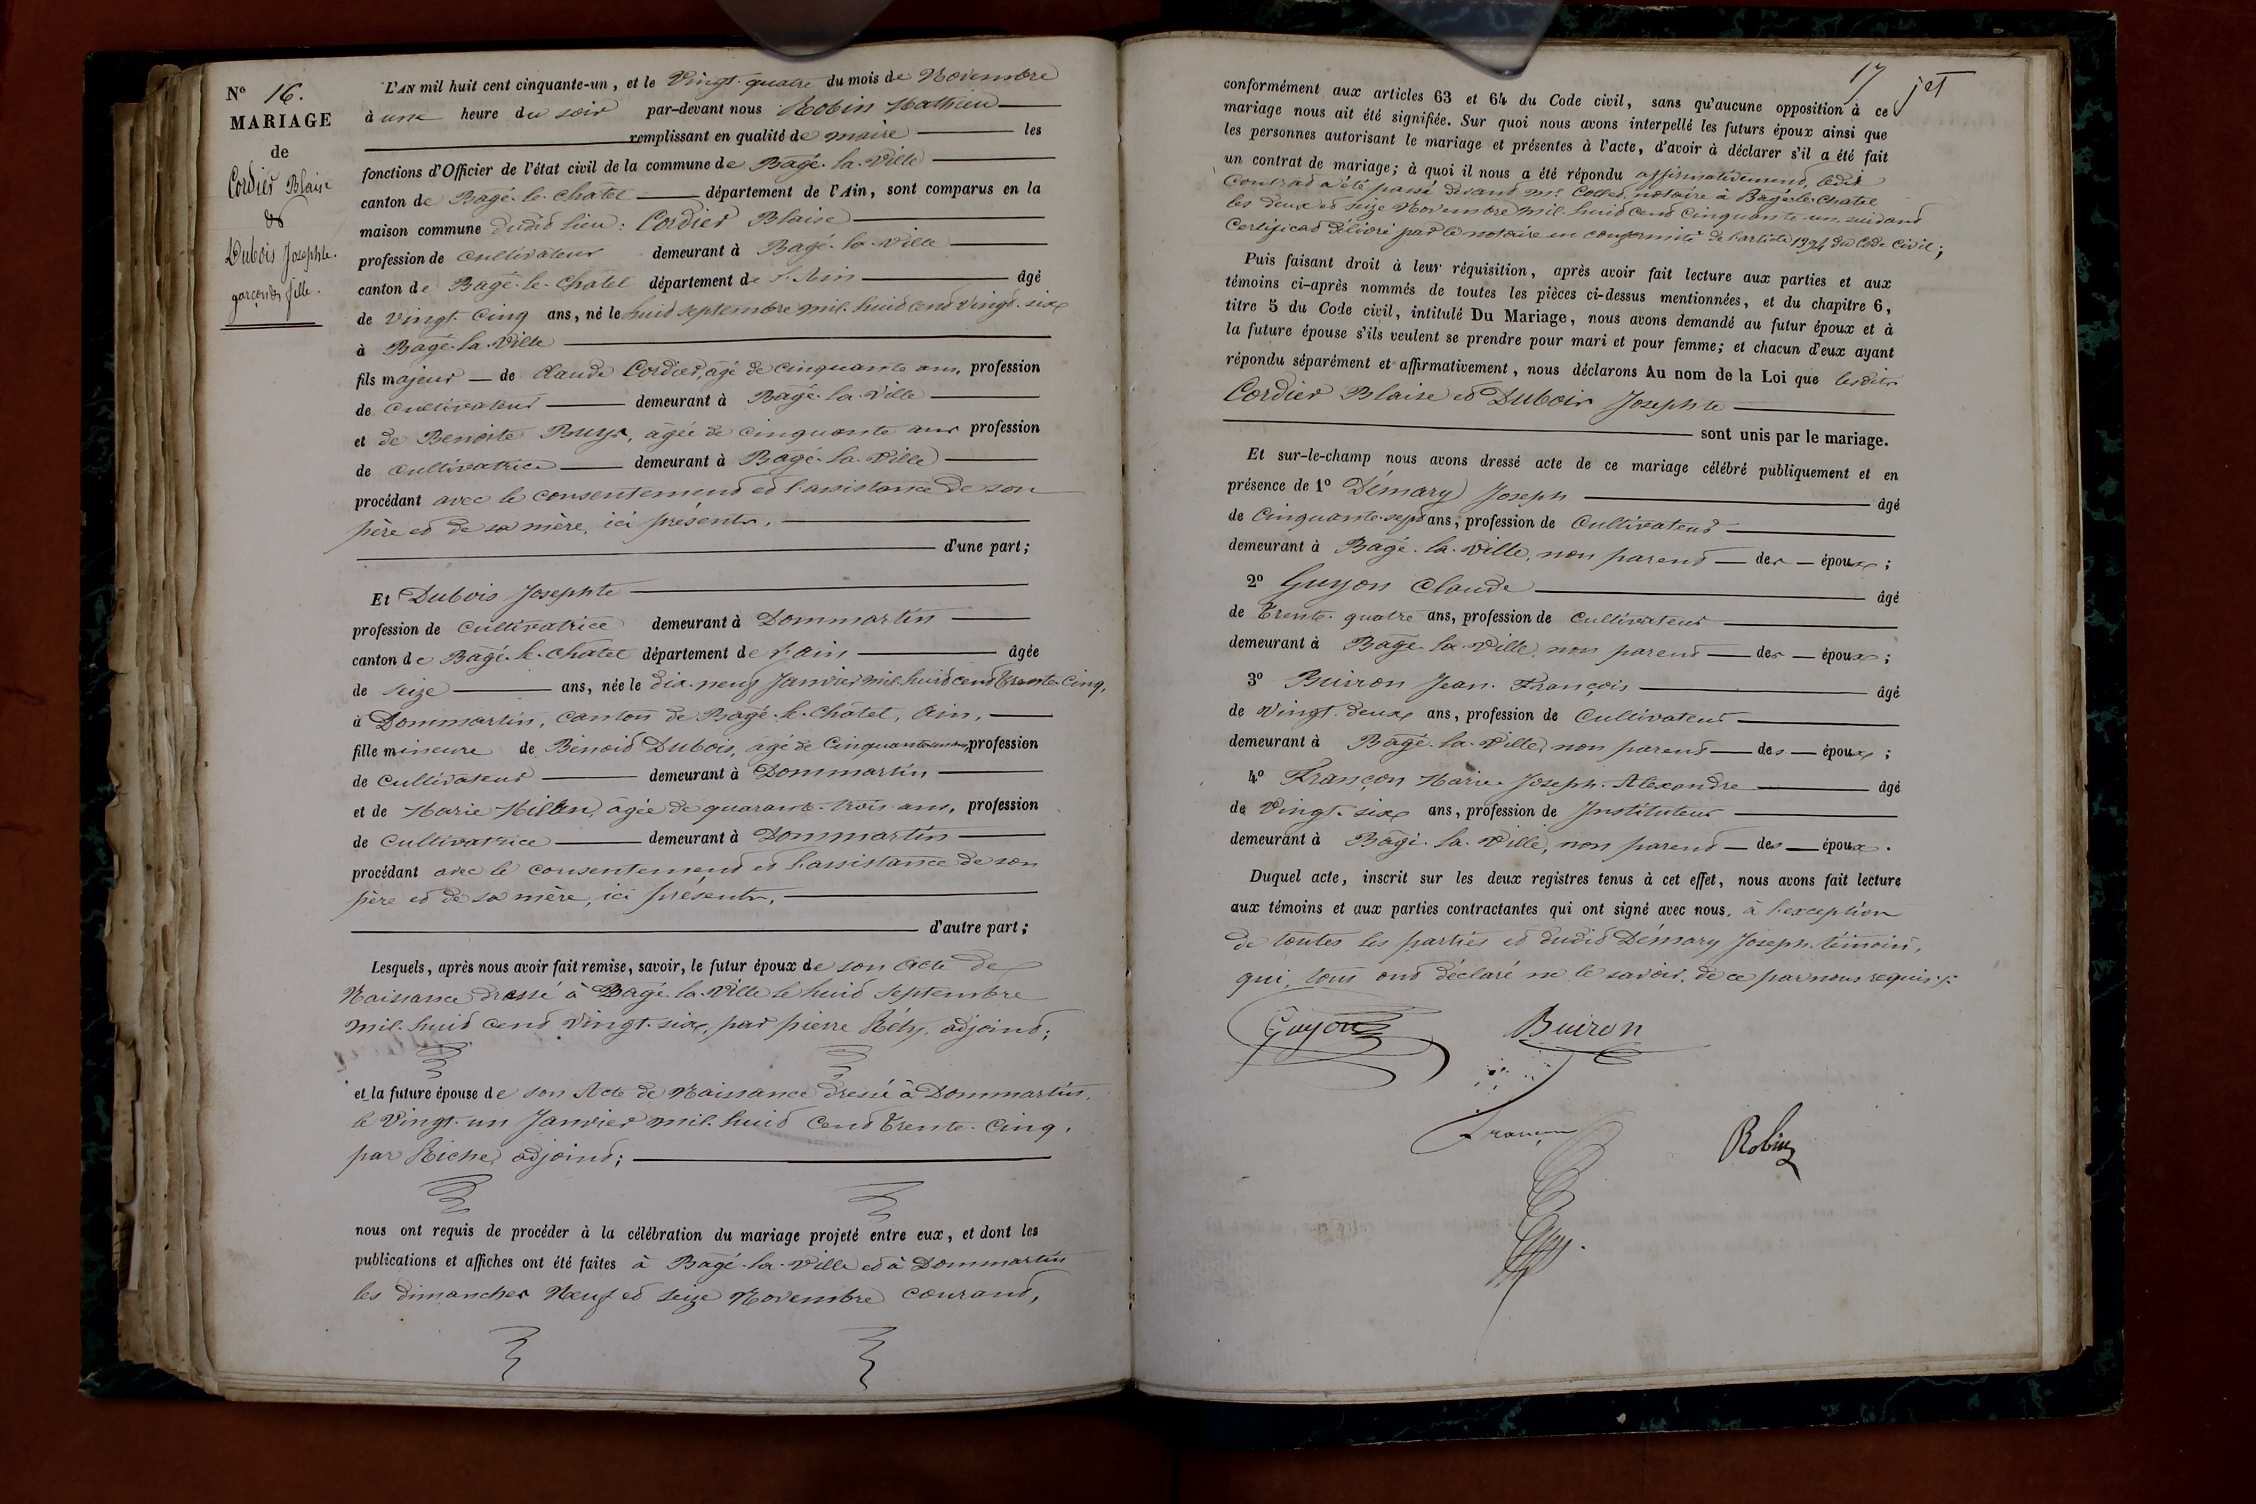 N° 16.
MARIAGE
de
Cordier Blaise
et
Dubois Josephte.
garçon et fille.
L'AN mil huit cent cinquante-un, et le Vingt-quatre du mois de Novembre
à une heure du soir par-devant nous Robin Mathieu
remplissant en qualité de maire les
fonctions d'Officier de l'état civil de la commune de Bagé-la-Ville
canton de Bagé-le-Châtel département de l'Ain, sont comparus en la
maison commune dudit lieu: Cordier Blaise
profession de Cultivateur demeurant à Bagé-la-Ville
canton de Bagé-le-Châtel département de l'Ain âgé
de Vingt-Cinq ans, né le huit Septembre mil-huit cent Vingt-six
à Bagé-la-Ville
fils majeur de Claude Cordier, âgé de Cinquante ans, profession
de Cultivateur demeurant à Bagé-la-Ville
et de Benoite Buys, âgée de Cinquante ans profession
de Cultivatrice demeurant à Bagé-la-Ville
procédant avec le consentement et l'assistance de son
père et de sa mère, ici présents,
d'une part;
Et Dubois Josephte
profession de Cultivatrice demeurant à Dommartin
canton de Bagé-le-Châtel département de l'ain âgée
de Seize ans, née le dix-neuf Janvier mil-huit cent Trente-Cinq,
à Dommartin, canton de Bagé-le-Châtel, Ain,
fille mineure de Benoit Dubois, âgé de Cinquante profession
de Cultivateur demeurant à Dommartin
et de Marie âgée de quarante-trois ans, profession
de Cultivatrice demeurant à Dommartin
procédant avec le consentement et l'assistance de son
père et de sa mère, ici présents,
d'autre part;
Lesquels, après nous avoir fait remise, savoir, le futur époux de son Acte de
Naissance dressé à Bagé-la-Ville le huit Septembre
mil-huit cent Vingt-six, par pierre adjoint;
et la future épouse de son Acte de Naissance dressé à Dommartin,
le Vingt-un Janvier mil-huit Cent Trente-Cinq,
par adjoint;
nous ont requis de procéder à la célébration du mariage projeté entre eux, et dont les
publications et affiches ont été faites à Bagé-la-Ville et à Dommartin
les dimanches Neuf et Seize Novembre Courant,
17
conformément aux articles 63 et 64 du Code civil, sans qu'aucune opposition à ce
mariage nous ait été signifiée. Sur quoi nous avons interpellé les futurs époux ainsi que
les personnes autorisant le mariage et présentes à l'acte, d'avoir à déclarer s'il a été fait
un contrat de mariage; à quoi il nous a été répondu affirmativement, ledit
Contrat a été passé devant notaire à Bagé-le-Chatel
les deux et Seize Novembre mil-huit Cent Cinquante-un, suivant
Certificat délivré par le notaire en conformité de l'article 1394 du Code Civil;
Puis faisant droit à leur réquisition, après avoir fait lecture aux parties et aux
témoins ci-après nommés de toutes les pièces ci-dessus mentionnées, et du chapitre 6,
titre 5 du Code civil, intitulé Du Mariage, nous avons demandé au futur époux et à
la future épouse s'ils veulent se prendre pour mari et pour femme; et chacun d'eux ayant
répondu séparément et affirmativement, nous déclarons Au nom de la Loi que lesdits
Cordier Blaise et Dubois Josephte
sont unis par le mariage.
Et sur-le-champ nous avons dressé acte de ce mariage célébré publiquement et en
présence de 1° Démary Joseph âgé
de Cinquante-sept ans, profession de Cultivateur
demeurant à Bagé-la-Ville, non parent des époux;
2° Guyon Claude âgé
de Trente-quatre ans, profession de Cultivateur
demeurant à Bagé-la-Ville, non parent des époux;
3° Buiron Jean-François âgé
de Vingt-deux ans, profession de Cultivateur
demeurant à Bagé-la-Ville, non parent des époux;
4° Françon Marie-Joseph-Alexandre âgé
de Vingt-six ans, profession de Instituteur
demeurant à Bagé-la-Ville, non parent des époux.
Duquel acte, inscrit sur les deux registres tenus à cet effet, nous avons fait lecture
aux témoins et aux parties contractantes qui ont signé avec nous, à l'exception
de toutes les parties et dudit Démary Joseph, témoin,
qui, tous ont déclaré ne le savoir, de ce par nous requis.
Guyon Buiron
Françon Robin